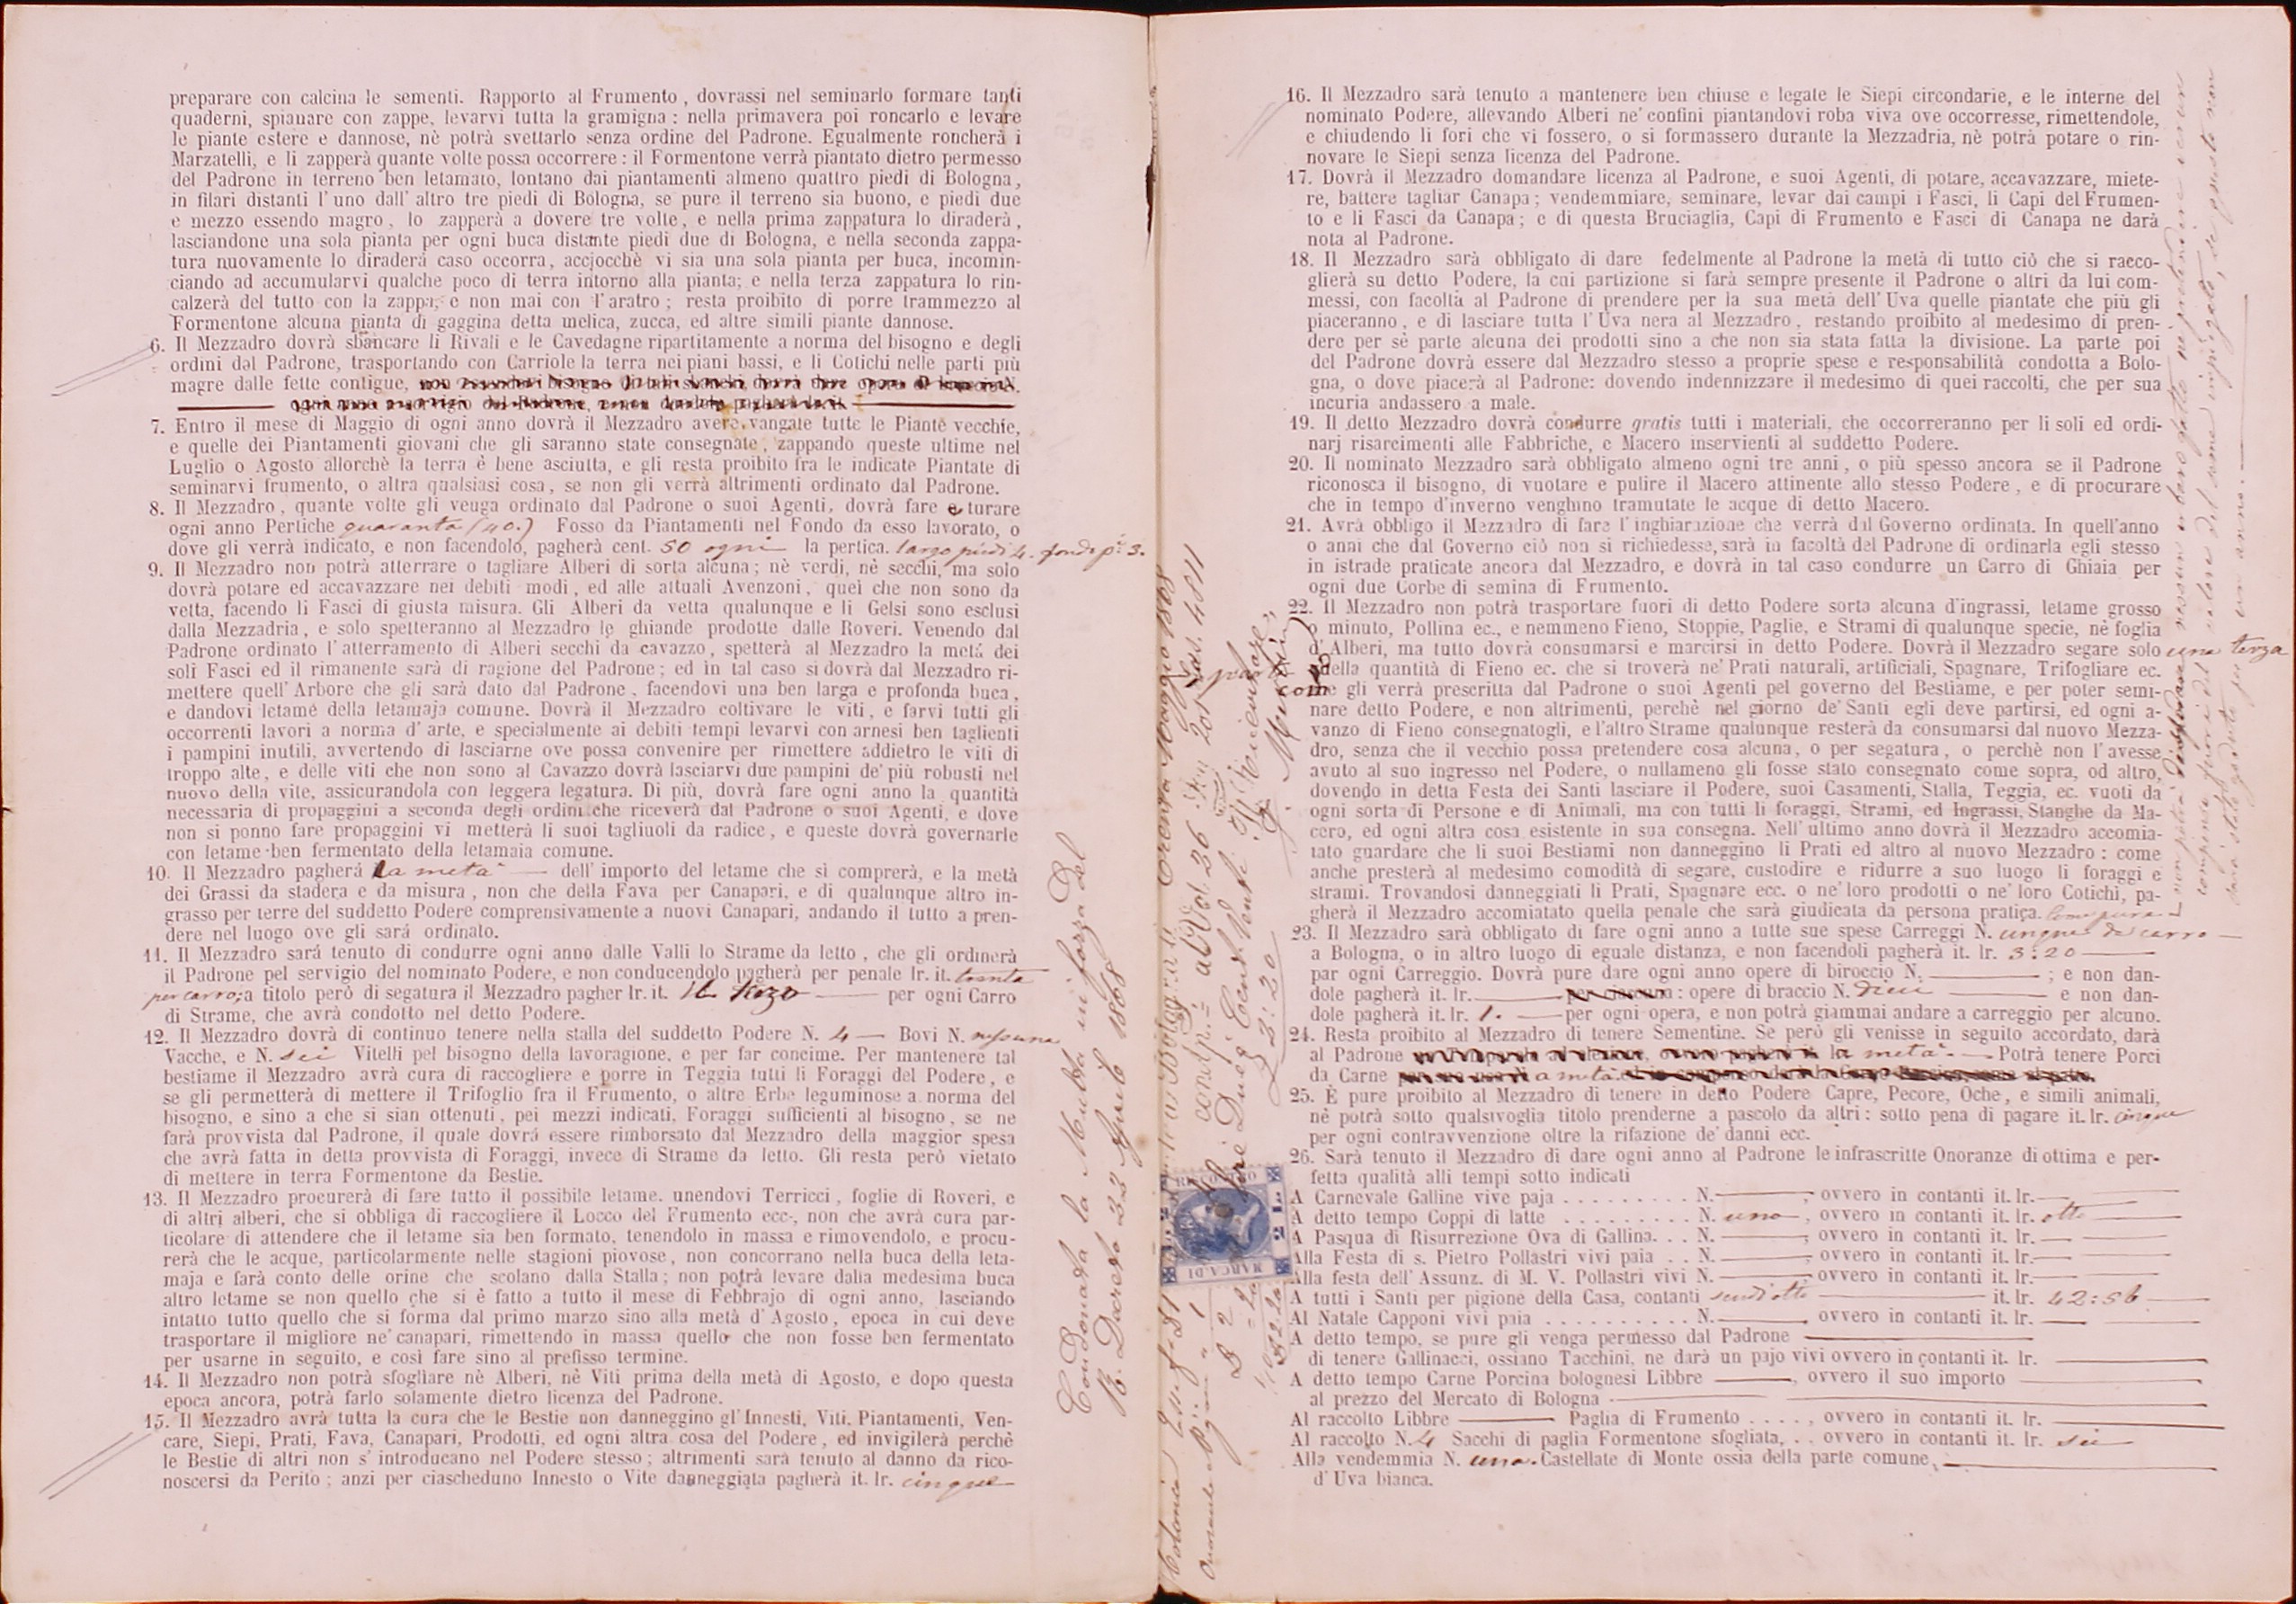 preparare con calcina le sementi. Rapporto al Frumento, dovrassi nel seminarlo formare tanti
quaderni, spianare con zappe, levarvi tutta la gramigna: nella primavera poi roncarlo e levare
le piante estere e dannose, nè potrà svettarlo senza ordine del Padrone. Egualmente roncherà i
Marzatelli, e li zapperà quante volte possa occorrere: il Formentone verrà piantato dietro permesso
del Padrone in terreno ben letamato, lontano dai piantamenti almeno quattro piedi di Bologna,
in filari distanti l'uno dall'altro tre piedi di Bologna, se pure il terreno sia buono, e piedi due
e mezzo essendo magro, lo zapperà a dovere tre volte, e nella prima zappatura lo diraderà,
lasciandone una sola pianta per ogni buca distante piedi due di Bologna, e nella seconda zappa-
tura nuovamente lo diraderà caso occorra, acciocchè vi sia una sola pianta per buca, incomin-
ciando ad accumularvi qualche poco di terra intorno alla pianta; e nella terza zappatura lo rin-
calzerà del tutto con la zappa, e non mai con l'aratro; resta proibito di porre trammezzo al
Formentone alcuna pianta di gaggina detta melica, zucca, ed altre simili piante dannose.
6. Il Mezzadro dovrà sbancare li Rivali e le Cavedagne ripartitamente a norma del bisogno e degli
ordini dal Padrone, trasportando con Carriole la terra nei piani bassi, e li Cotichi nelle parti più
magre dalle fette contigue,
7. Entro il mese di Maggio di ogni anno dovrà il Mezzadro avere vangate tutte le Piante vecchie,
e quelle dei Piantamenti giovani che gli saranno state consegnate, zappando queste ultime nel
Luglio o Agosto allorchè la terra è bene asciutta, e gli resta proibito fra le indicate Piantate di
seminarvi frumento, o altra qualsiasi cosa, se non gli verrà altrimenti ordinato dal Padrone.
8. Il Mezzadro, quante volte gli venga ordinato dal Padrone o suoi Agenti, dovrà fare e turare
ogni anno Pertiche quaranta (40.) Fosso da Piantamenti nel Fondo da esso lavorato, o
dove gli verrà indicato, e non facendolo, pagherà cent. 50 ogni la pertica. largo piedi 4. fondo p. 3.
9. Il Mezzadro non potrà atterrare o tagliare Alberi di sorta alcuna; nè verdi, nè secchi, ma solo
dovrà potare ed accavazzare nei debiti modi, ed alle attuali Avenzoni, quei che non sono da
vetta, facendo li Fasci di giusta misura. Gli Alberi da vetta qualunque e li Gelsi sono esclusi
dalla Mezzadria, e solo spetteranno al Mezzadro le ghiande prodotte dalle Roveri. Venendo dal
Padrone ordinato l'atterramento di Alberi secchi da cavazzo, spetterà al Mezzadro la metà dei
soli Fasci ed il rimanente sarà di ragione del Padrone; ed in tal caso si dovrà dal Mezzadro ri-
mettere quell'Arbore che gli sarà dato dal Padrone, facendovi una ben larga e profonda buca,
e dandovi letame della letamaja comune. Dovrà il Mezzadro coltivare le viti, e farvi tutti gli
occorrenti lavori a norma d'arte, e specialmente ai debiti tempi levarvi con arnesi ben taglienti
i pampini inutili, avvertendo di lasciarne ove possa convenire per rimettere addietro le viti di
troppo alte, e delle viti che non sono al Cavazzo dovrà lasciarvi due pampini de' più robusti nel
nuovo della vite, assicurandola con leggera legatura. Di più, dovrà fare ogni anno la quantità
necessaria di propaggini a seconda degli ordini che riceverà dal Padrone o suoi Agenti, e dove
non si ponno fare propaggini vi metterà li suoi tagliuoli da radice, e queste dovrà governarle
con letame ben fermentato della letamaia comune.
10. Il Mezzadro pagherà la metà dell'importo del letame che si comprerà, e la metà
dei Grassi da stadera e da misura, non che della Fava per Canapari, e di qualunque altro in-
grasso per terre del suddetto Podere comprensivamente a nuovi Canapari, andando il tutto a pren-
dere nel luogo ove gli sarà ordinato.
11. Il Mezzadro sarà tenuto di condurre ogni anno dalle Valli lo Strame da letto, che gli ordinerà
il Padrone pel servigio del nominato Podere, e non conducendolo pagherà per penale lr. it. trenta
per carro; a titolo però di segatura il Mezzadro pagher lr. it. il terzo per ogni Carro
di Strame, che avrà condotto nel detto Podere.
12. Il Mezzadro dovrà di continuo tenere nella stalla del suddetto Podere N. 4 Bovi N. nessuna
Vacche, e N. sei Vitelli pel bisogno della lavoragione, e per far concime. Per mantenere tal
bestiame il Mezzadro avrà cura di raccogliere e porre in Teggia tutti li Foraggi del Podere, e
se gli permetterà di mettere il Trifoglio fra il Frumento, o altre Erbe leguminose a norma del
bisogno, e sino a che si sian ottenuti, pei mezzi indicati, Foraggi sufficienti al bisogno, se ne
farà provvista dal Padrone, il quale dovrà essere rimborsato dal Mezzadro della maggior spesa
che avrà fatta in detta provvista di Foraggi, invece di Strame da letto. Gli resta però vietato
di mettere in terra Formentone da Bestie.
13. Il Mezzadro procurerà di fare tutto il possibile letame. unendovi Terricci, foglie di Roveri, e
di altri alberi, che si obbliga di raccogliere il Locco del Frumento ecc-, non che avrà cura par-
ticolare di attendere che il letame sia ben formato, tenendolo in massa e rimovendolo, e procu-
rerà che le acque, particolarmente nelle stagioni piovose, non concorrano nella buca della leta-
maja e farà conto delle orine che scolano dalla Stalla; non potrà levare dalla medesima buca
altro letame se non quello che si è fatto a tutto il mese di Febbrajo di ogni anno, lasciando
intatto tutto quello che si forma dal primo marzo sino alla metà d'Agosto, epoca in cui deve
trasportare il migliore ne' canapari, rimettendo in massa quello che non fosse ben fermentato
per usarne in seguito, e così fare sino al prefisso termine.
14. Il Mezzadro non potrà sfogliare nè Alberi, nè Viti prima della metà di Agosto, e dopo questa
epoca ancora, potrà farlo solamente dietro licenza del Padrone.
15. Il Mezzadro avrà tutta la cura che le Bestie non danneggino gl'Innesti, Viti, Piantamenti, Ven-
care, Siepi, Prati, Fava, Canapari, Prodotti, ed ogni altra cosa del Podere, ed invigilerà perchè
le Bestie di altri non s'introducano nel Podere stesso; altrimenti sarà tenuto al danno da rico-
noscersi da Perito; anzi per ciascheduno Innesto o Vite danneggiata pagherà it. lr. cinque
Condonata la Multa in forza del
R. Decreto 23 Aprile 1868
Maggio 1868
Vol. 36
2:20
MARCA DI
16. Il Mezzadro sarà tenuto a mantenere ben chiuse e legate le Siepi circondarie, e le interne del
nominato Podere, allevando Alberi ne' confini piantandovi roba viva ove occorresse, rimettendole,
e chiudendo li fori che vi fossero, o si formassero durante la Mezzadria, nè potrà potare o rin-
novare le Siepi senza licenza del Padrone.
17. Dovrà il Mezzadro domandare licenza al Padrone, e suoi Agenti, di potare, accavazzare, miete-
re, battere tagliar Canapa; vendemmiare, seminare, levar dai campi i Fasci, li Capi del Frumen-
to e li Fasci da Canapa; e di questa Bruciaglia, Capi di Frumento e Fasci di Canapa ne darà
nota al Padrone.
18. Il Mezzadro sarà obbligato di dare fedelmente al Padrone la metà di tutto ciò che si racco-
glierà su detto Podere, la cui partizione si farà sempre presente il Padrone o altri da lui com-
messi, con facoltà al Padrone di prendere per la sua metà dell'Uva quelle piantate che più gli
piaceranno, e di lasciare tutta l'Uva nera al Mezzadro, restando proibito al medesimo di pren-
dere per sè parte alcuna dei prodotti sino a che non sia stata fatta la divisione. La parte poi
del Padrone dovrà essere dal Mezzadro stesso a proprie spese e responsabilità condotta a Bolo-
gna, o dove piacerà al Padrone: dovendo indennizzare il medesimo di quei raccolti, che per sua
incuria andassero a male.
19. Il detto Mezzadro dovrà condurre gratis tutti i materiali, che occorreranno per li soli ed ordi-
narj risarcimenti alle Fabbriche, e Macero inservienti al suddetto Podere.
20. Il nominato Mezzadro sarà obbligato almeno ogni tre anni, o più spesso ancora se il Padrone
riconosca il bisogno, di vuotare e pulire il Macero attinente allo stesso Podere, e di procurare
che in tempo d'inverno venghino tramutate le acque di detto Macero.
21. Avrà obbligo il Mezzadro di fare l'inghiarazione che verrà dal Governo ordinata. In quell'anno
o anni che dal Governo ciò non si richiedesse, sarà in facoltà del Padrone di ordinarla egli stesso
in istrade praticate ancora dal Mezzadro, e dovrà in tal caso condurre un Carro di Ghiaia per
ogni due Corbe di semina di Frumento.
22. Il Mezzadro non potrà trasportare fuori di detto Podere sorta alcuna d'ingrassi, letame grosso
o minuto, Pollina ec., e nemmeno Fieno, Stoppie, Paglie, e Strami di qualunque specie, nè foglia
d'Alberi, ma tutto dovrà consumarsi e marcirsi in detto Podere. Dovrà il Mezzadro segare solo una terza
parte della quantità di Fieno ec. che si troverà ne' Prati naturali, artificiali, Spagnare, Trifogliare ec.
come gli verrà prescritta dal Padrone o suoi Agenti pel governo del Bestiame, e per poter semi-
nare detto Podere, e non altrimenti, perchè nel giorno de' Santi egli deve partirsi, ed ogni a-
vanzo di Fieno consegnatogli, e l'altro Strame qualunque resterà da consumarsi dal nuovo Mezza-
dro, senza che il vecchio possa pretendere cosa alcuna, o per segatura, o perchè non l'avesse
avuto al suo ingresso nel Podere, o nullameno gli fosse stato consegnato come sopra, od altro,
dovendo in detta Festa dei Santi lasciare il Podere, suoi Casamenti, Stalla, Teggia, ec. vuoti da
ogni sorta di Persone e di Animali, ma con tutti li foraggi, Strami, ed Ingrassi, Stanghe da Ma-
cero, ed ogni altra cosa esistente in sua consegna. Nell'ultimo anno dovrà il Mezzadro accomia-
tato guardare che li suoi Bestiami non danneggino li Prati ed altro al nuovo Mezzadro: come
anche presterà al medesimo comodità di segare, custodire e ridurre a suo luogo li foraggi e
strami. Trovandosi danneggiati li Prati, Spagnare ecc. o ne' loro prodotti o ne' loro Cotichi, pa-
gherà il Mezzadro accomiatato quella penale che sarà giudicata da persona pratica. Come pure
23. Il Mezzadro sarà obbligato di fare ogni anno a tutte sue spese Carreggi N. cinque da carro
a Bologna, o in altro luogo di eguale distanza, e non facendoli pagherà it. lr. 3:20
par ogni Carreggio. Dovrà pure dare ogni anno opere di biroccio N. ; e non dan-
dole pagherà it. lr. per ciascuna: opere di braccio N. dieci e non dan-
dole pagherà it. lr. 1. per ogni opera, e non potrà giammai andare a carreggio per alcuno.
24. Resta proibito al Mezzadro di tenere Sementine. Se però gli venisse in seguito accordato, darà
al Padrone la metà. Potrà tenere Porci
da Carne a metà
25. È pure proibito al Mezzadro di tenere in detto Podere Capre, Pecore, Oche, e simili animali,
nè potrà sotto qualsivoglia titolo prenderne a pascolo da altri: sotto pena di pagare it. lr. cinque
per ogni contravvenzione oltre la rifazione de' danni ecc.
26. Sarà tenuto il Mezzadro di dare ogni anno al Padrone le infrascritte Onoranze di ottima e per-
fetta qualità alli tempi sotto indicati
A Carnevale Galline vive paja . . . . . . . . . N. , ovvero in contanti it. lr.
A detto tempo Coppi di latte . . . . . . . . . N. uno , ovvero in contanti it. lr. otto
A Pasqua di Risurrezione Ova di Gallina. . . N. , ovvero in contanti it. lr.
Alla Festa di s. Pietro Pollastri vivi paia . . N. , ovvero in contanti it. lr.
Alla festa dell'Assunz. di M. V. Pollastri vivi N. ovvero in contanti it. lr.
A tutti i Santi per pigione della Casa, contanti scudi otto it. lr. 42:56
Al Natale Capponi vivi paia . . . . . . . . . . N. ovvero in contanti it. lr.
A detto tempo, se pure gli venga permesso dal Padrone
di tenere Gallinacci, ossiano Tacchini, ne darà un pajo vivi ovvero in contanti it. lr.
A detto tempo Carne Porcina bolognesi Libbre , ovvero il suo importo
al prezzo del Mercato di Bologna
Al raccolto Libbre Paglia di Frumento . . . . , ovvero in contanti it. lr.
Al raccolto N. 4 Sacchi di paglia Formentone sfogliata, . . ovvero in contanti it. lr. sei
Alla vendemmia N. una. Castellate di Monte ossia della parte comune,
d'Uva bianca.